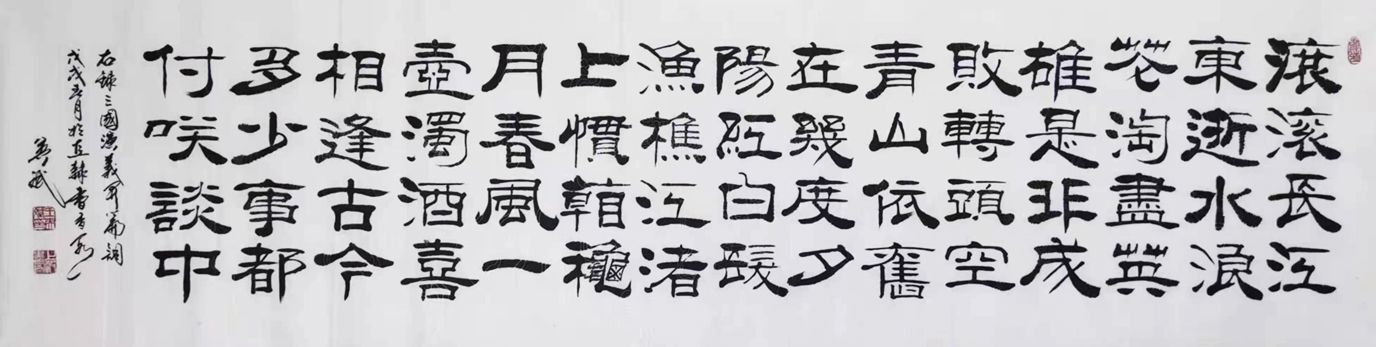 滚滚長江
東逝水浪
花淘盡英
雄是非成
敗轉頭空
青山依舊
在幾度夕
陽紅白髮
漁樵江渚
上慣看龝
月春風一
壺濁酒喜
相逢古今
多少事都
付咲談中
右錄三國演義開篇詞
戊戌五月於直隸書